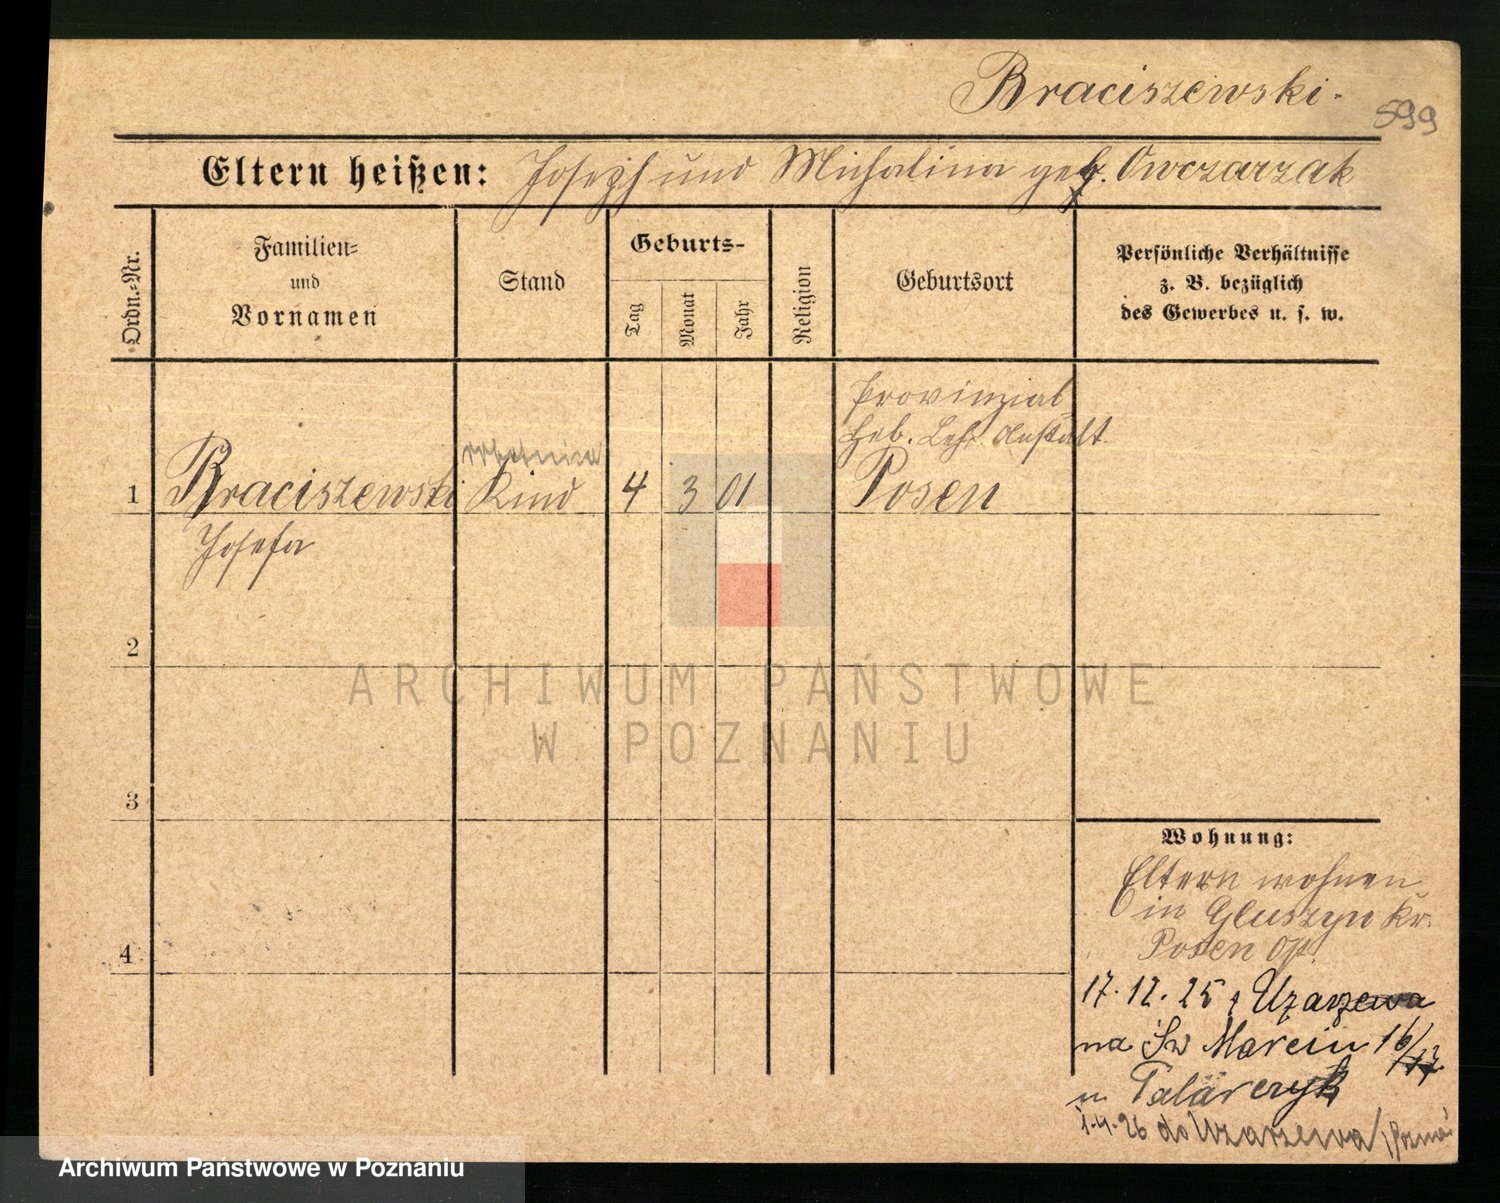 Braciszewski.
599
Eltern heißen: Joseph und Michalina geb. Owczarzak
Ordn.-Nr.
Familien-
und
Vornamen
Stand
Geburts-
Tag
Monat
Jahr
Religion
Geburtsort
Persönliche Verhältnisse
z. B. bezüglich
des Gewerbes u. s. w.
Provinzial
Heb. Lehr. Anstalt
1 Braciszewski Kind 4 3 01 Posen
Josefa
2
ARCHIWUM PAŃSTWOWE
W POZNANIU
3
Wohnung:
Eltern wohnen
in Gluszyn Kr.
4
Posen Op.
17.12.25 z Uzarzewa
na Św Marcin 16/17
u Talarczyk
1.4.26 do Uzarzewa
Archiwum Państwowe w Poznaniu